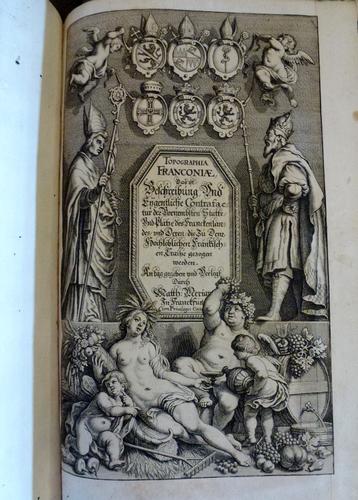 TOPOGRAPHIA
FRANCONIÆ,
Das ist
Beschreibung Vnd
Eygentliche Contrafac
tur der Vornembsten Stätte
Vnd Plätze des Franckenlan
des, vnd Deren, die Zu Dem
Hochlöblichen Fränkisch
en Craiße gezogen
werden.
An tag gegeben vnd Verlegt
Durch
Matth. Merian
In Franckfurt
Cum Privilegio